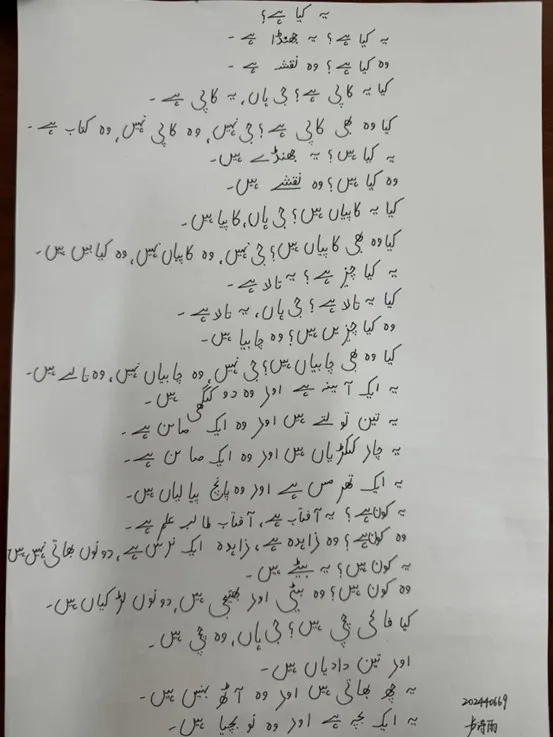 یہ کیا ہے؟
یہ کیا ہے؟ یہ جھنڈا ہے۔
وہ کیا ہے؟ وہ نقشہ ہے۔
کیا یہ کاپی ہے؟ جی ہاں، یہ کاپی ہے۔
کیا وہ بھی کاپی ہے؟ جی نہیں، وہ کاپی نہیں، وہ کتاب ہے۔
یہ کیا ہیں؟ یہ جھنڈے ہیں۔
وہ کیا ہیں؟ وہ نقشے ہیں۔
کیا یہ کاپیاں ہیں؟ جی ہاں، کاپیا ہیں۔
کیا وہ بھی کاپیاں ہیں؟ جی نہیں، وہ کاپیاں نہیں، وہ ہیں۔
یہ کیا چیز ہے؟ یہ تالا ہے۔
کیا یہ تالا ہے؟ جی ہاں، یہ تالا ہے۔
وہ کیا چیزیں ہیں؟ وہ چابیا ہیں۔
کیا وہ بھی چابیاں ہیں؟ جی نہیں، وہ چابیاں نہیں، وہ تالے ہیں۔
یہ ایک آئینہ ہے اور وہ دو ہیں۔
یہ تین تولئے ہیں اور وہ ایک صابن ہے۔
یہ چار ہیں اور وہ ایک صابن ہے۔
یہ ایک تھرمس ہے اور وہ پانچ پیالیاں ہیں۔
یہ کون ہے؟ یہ آفتاب ہے، آفتاب طالب علم ہے۔
وہ کون ہے؟ وہ زاہدہ ہے، زاہدہ ایک نرس ہے، دونوں بھائی ہیں
یہ کون ہیں؟ یہ بیٹے ہیں۔
وہ کون ہیں؟ وہ بیٹی اور بھتیجی ہیں، دونوں لڑکیاں ہیں۔
کیا ہیں؟ جی ہاں، وہ ہیں۔
اور تین دادیاں ہیں۔
یہ چھ بھائی ہیں اور وہ آٹھ بہنیں ہیں۔
یہ ایک بچہ ہے اور وہ نو بچیا ہیں۔
202440669
卢海雨